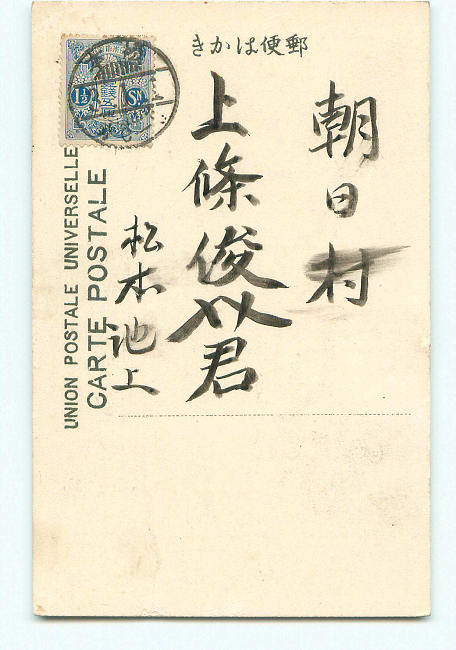 きかは便郵
朝日村
上條俊以君
松本池上
UNION POSTALE UNIVERSELLE
CARTE POSTALE
1½ Sn